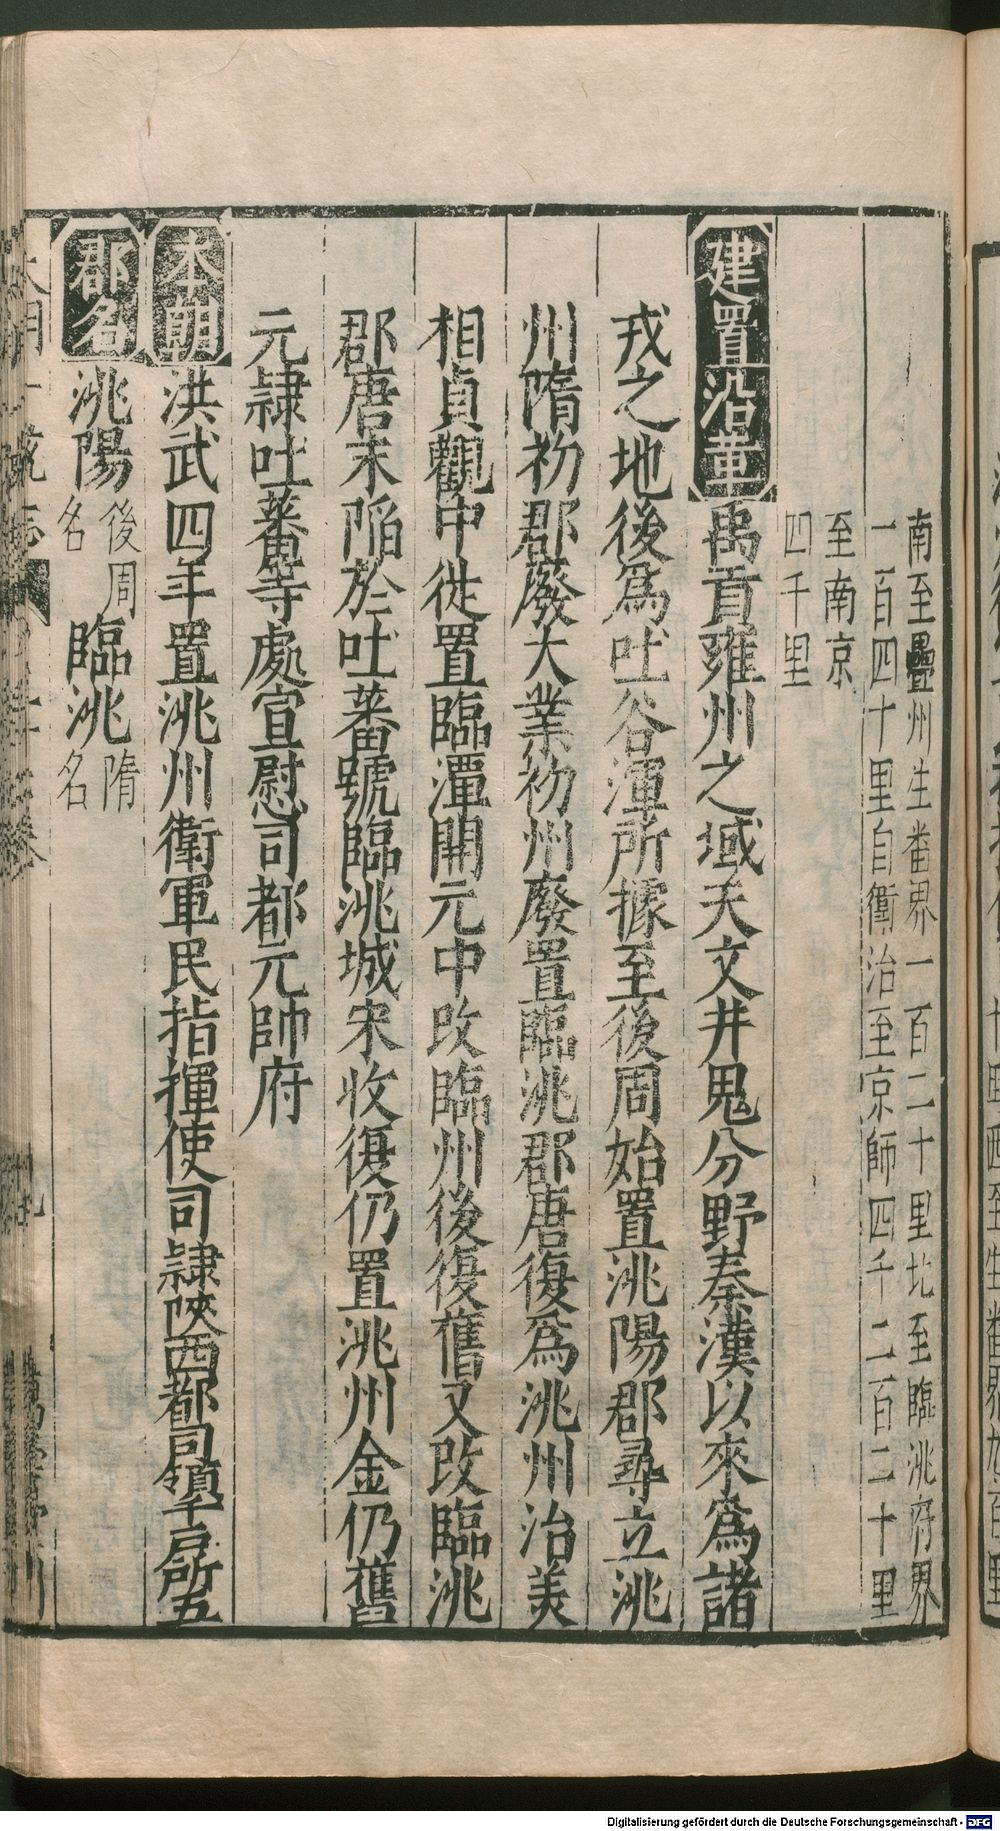 南至疊州生番界一百二十里北至臨洮府界
一百四十里自衛治至京師四千二百二十里
至南京
四千里
建置沿革禹貢雍州之域天文井鬼分野秦漢以來為諸
戎之地後為吐谷渾所據至後周始置洮陽郡尋立洮
州隋初郡廢大業初州廢置臨洮郡唐復為洮州治美
相貞觀中徙置臨潭開元中改臨州後復舊又改臨洮
郡唐末陷於吐蕃號臨洮城宋收復仍置洮州金仍舊
元隸吐蕃等處宣慰司都元帥府
本朝洪武四年置洮州衛軍民指揮使司隸陝西都司領千戶所五
郡名洮陽後周名臨洮隋名
Digitalisierung gefördert durch die Deutsche Forschungsgemeinschaft - DFG